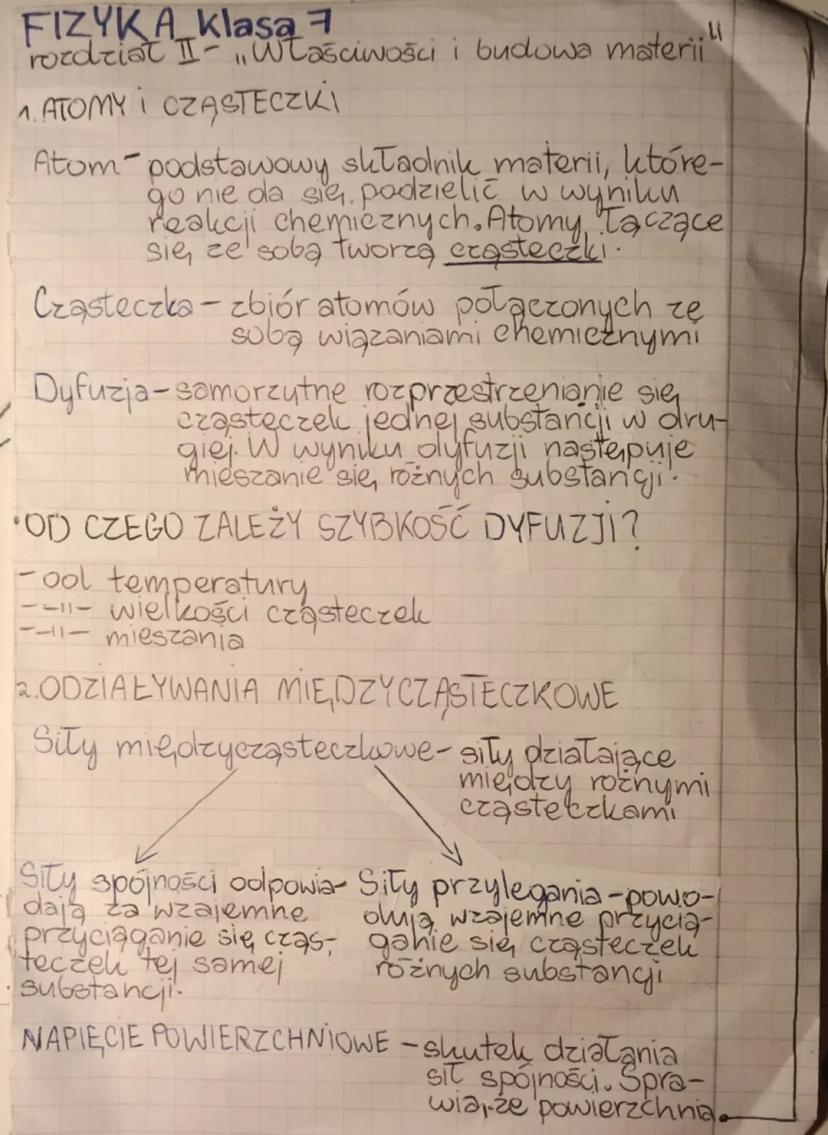 FIZYKA klasa 7
rozdział II - „Właściwości i budowa materii"
1. ATOMY i CZĄSTECZKI
Atom - podstawowy składnik materii, które-
go nie da się podzielić w wyniku
reakcji chemicznych. Atomy łączące
się ze sobą tworzą cząsteczki.
Cząsteczka - zbiór atomów połączonych ze
sobą wiązaniami chemicznymi
Dyfuzja - samorzutne rozprzestrzenianie się
cząsteczek jednej substancji w dru-
giej. W wyniku dyfuzji następuje
mieszanie się różnych substancji.
• OD CZEGO ZALEŻY SZYBKOŚĆ DYFUZJI?
- od temperatury
- -||- wielkości cząsteczek
- -||- mieszania
2. ODZIAŁYWANIA MIĘDZYCZĄSTECZKOWE
Siły międzycząsteczkowe - siły działające
między różnymi
cząsteczkami
Siły spójności odpowia-
dają za wzajemne
przyciąganie się cząs-
teczek tej samej
substancji.
Siły przylegania - powo-
dują wzajemne przycią-
ganie się cząsteczek
różnych substancji
NAPIĘCIE POWIERZCHNIOWE - skutek działania
sił spójności. Spra-
wia, że powierzchnia